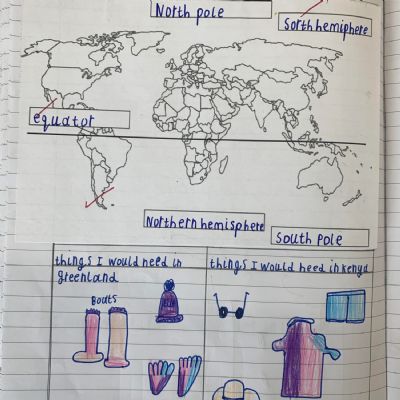 North pole
Sorth hemisphere
equator
Northern hemisphere
South pole
things I would need in
greenland
things I would need in kenya
Bouts